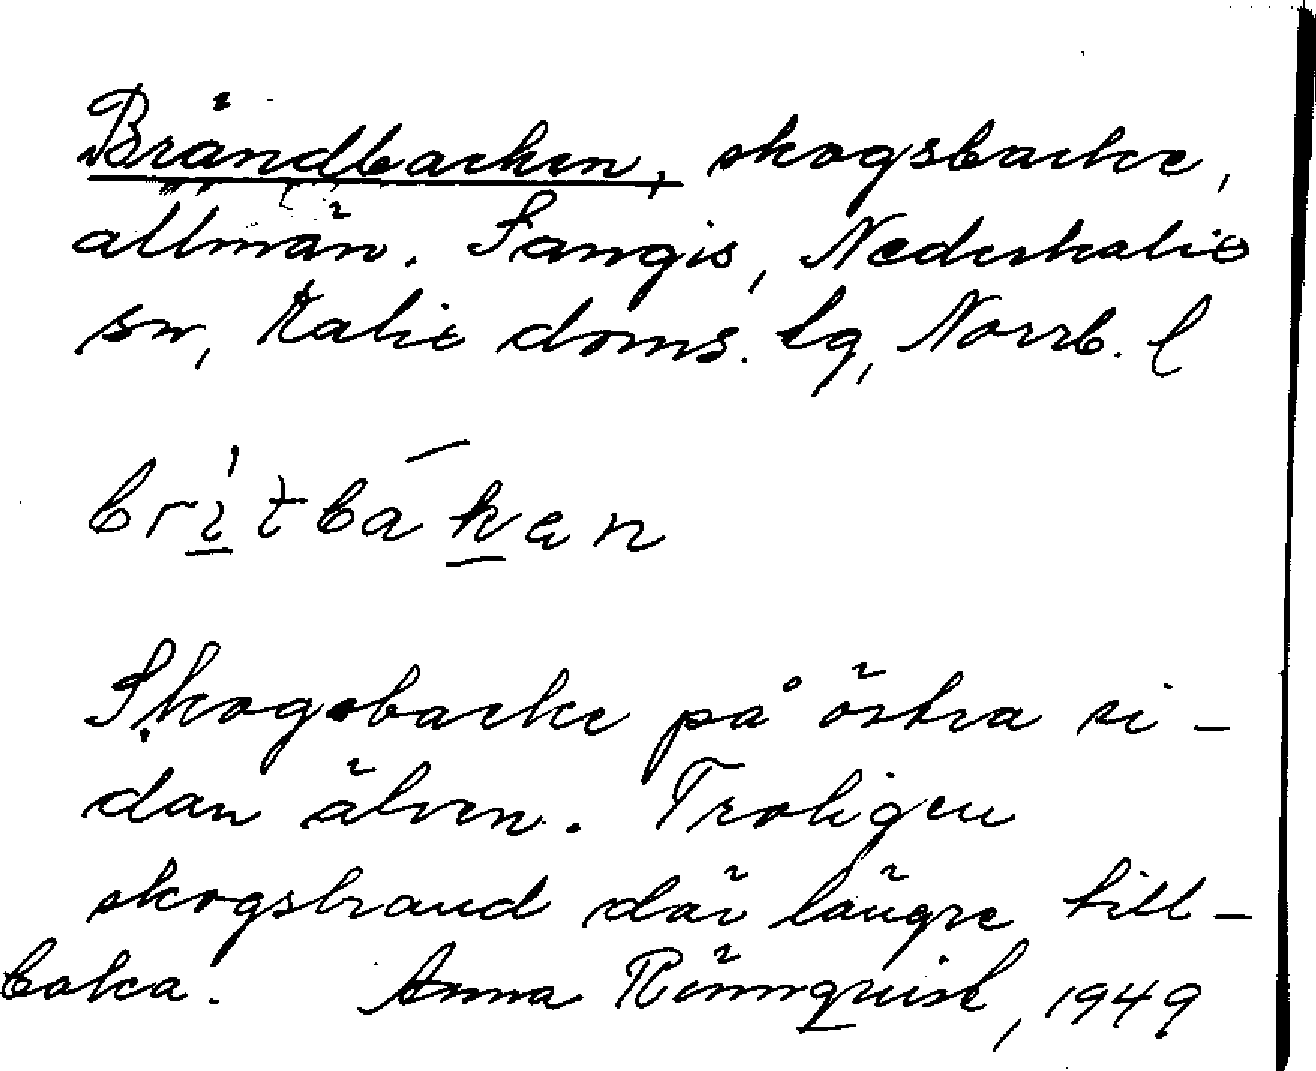 Brändbacken, skogsbacke,
allmän. Sangis, Nederkalix
sn, Kalix doms. lg, Norrb. l
britbaken
Skogsbacke på östra si-
dan älven. Troligen
skogsbrand där längre till-
baka. Anna Rönnquist, 1949